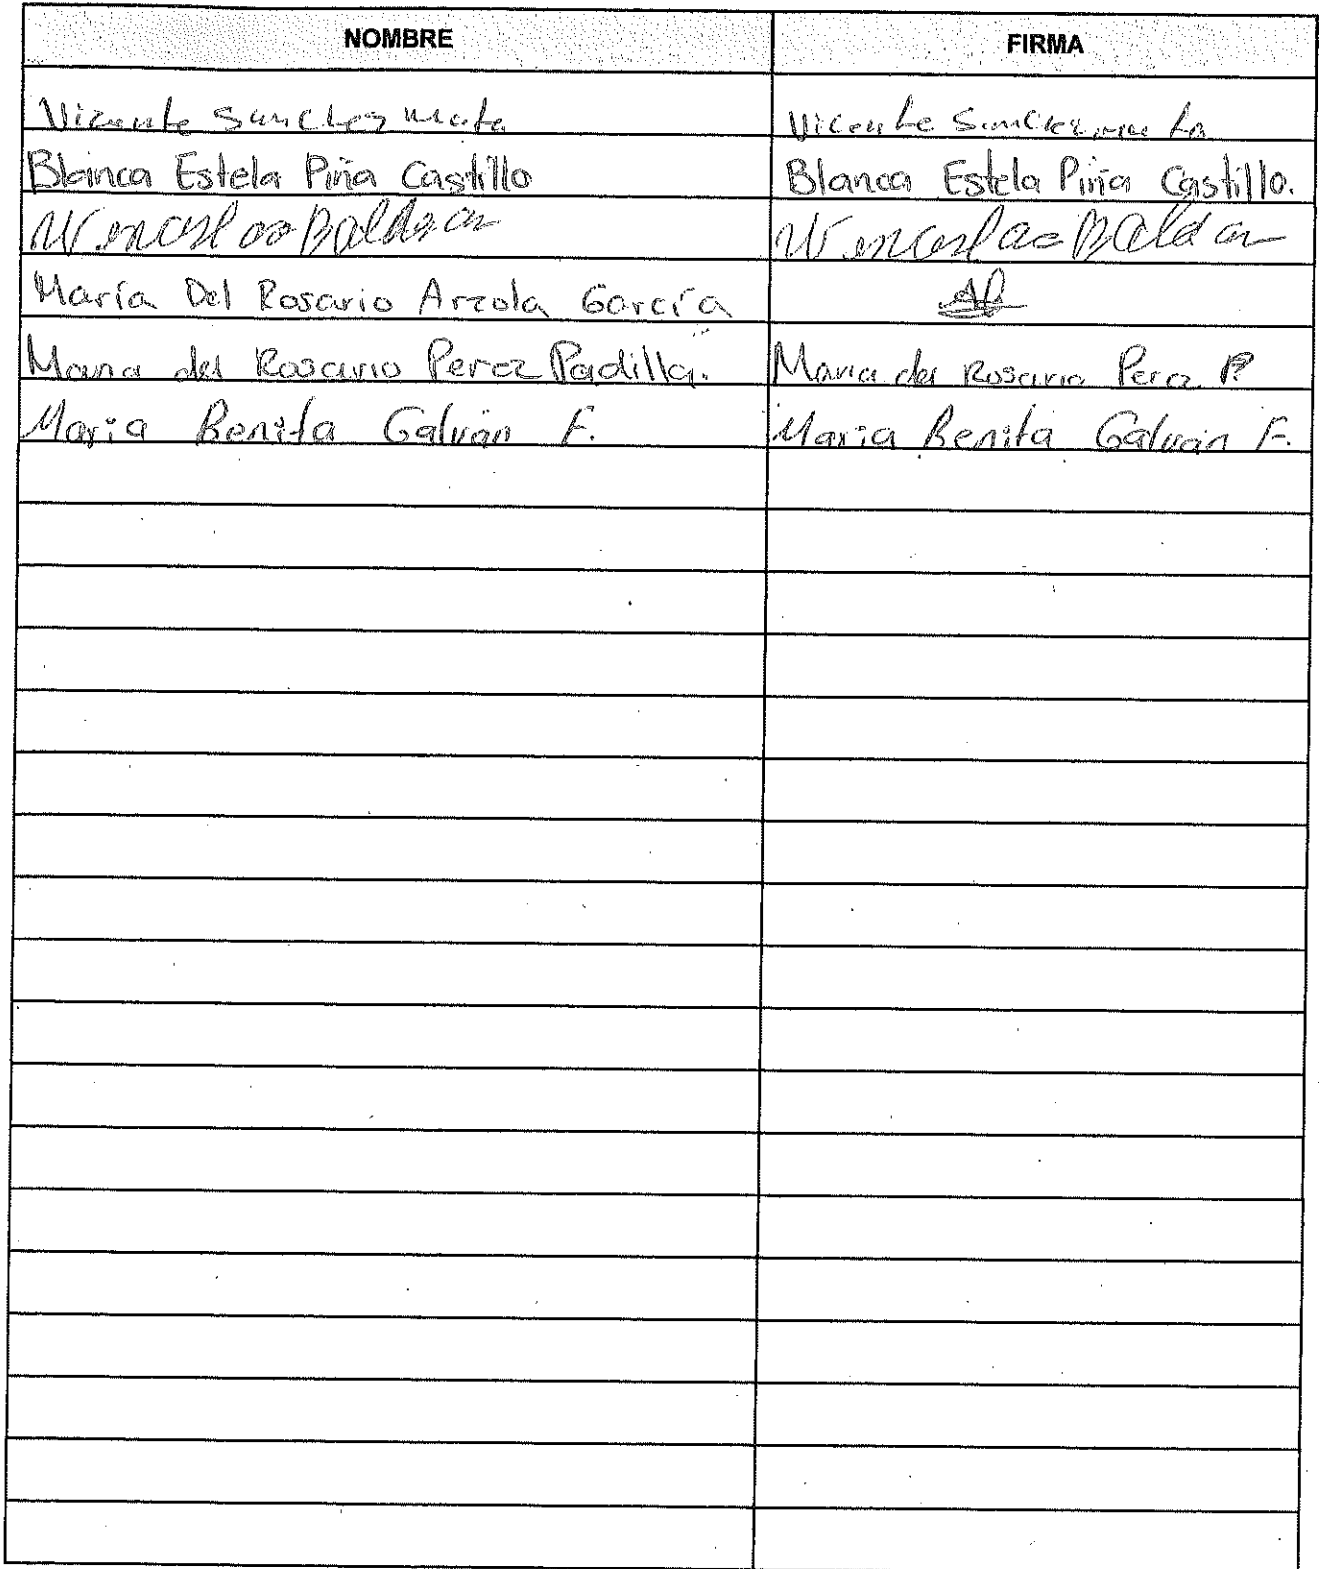 NOMBRE FIRMA
Vicente Sanchez Mata Vicente Sanchez mata
Blanca Estela Piña Castillo Blanca Estela Piña Castillo.
Wenceslao Wenceslao
María Del Rosario Arzola García
Maria del Rosario Perez Padilla. Maria del Rosario Perez P.
Maria Benita Galván F. Maria Benita Galván F.